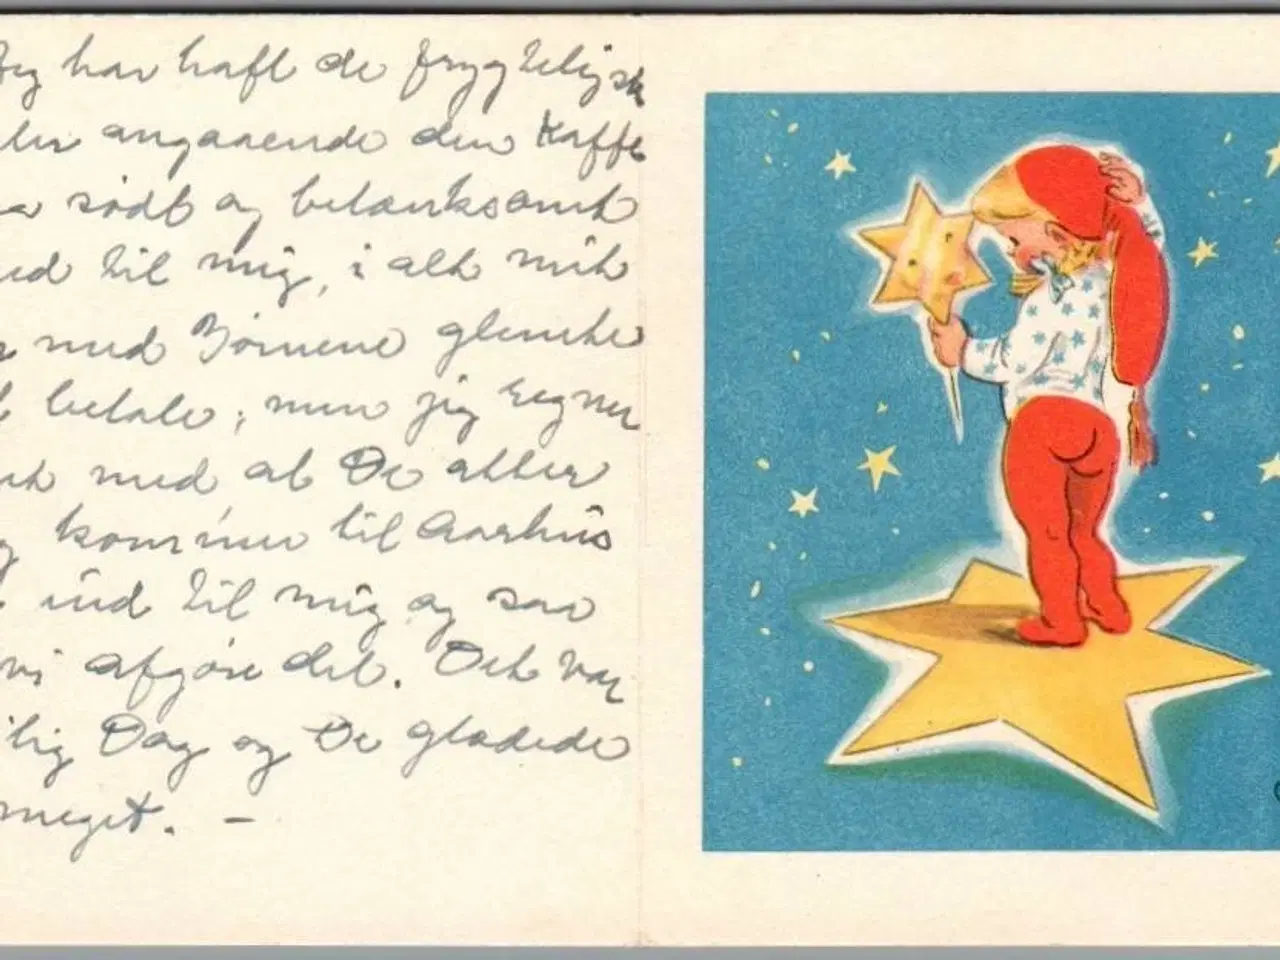 Jeg har haft de frygteligste
angaaende den Kaffe
sødt og betænksomt
med til mig, i alt mit
med Børnene glemte
at betale, men jeg regner
med at De atter
kommer til Aarhus
ind til mig og saa
vi afgøre det. Det var
Dag og De glædede
meget. —